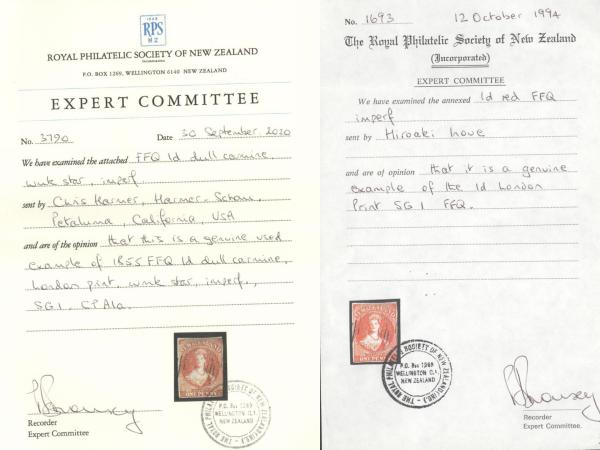 1948
RPS
NZ
ROYAL PHILATELIC SOCIETY OF NEW ZEALAND
P.O. BOX 1269, WELLINGTON 6140 NEW ZEALAND
EXPERT COMMITTEE
No. 3790 Date 30 September 2020
We have examined the attached FFQ 1d dull carmine,
wmk star, imperf
sent by Chris Harmer, Harmer-Schau,
Petaluma, California, USA
and are of the opinion that this is a genuine used
example of 1855 FFQ 1d dull carmine,
London print, wmk star, imperf.,
SG1, CP A1a.
ONE PENNY
THE ROYAL PHILATELIC SOCIETY OF NEW ZEALAND (INC.)
P.O. Box 1269
WELLINGTON C.1.
NEW ZEALAND
Recorder
Expert Committee.
No. 1693 12 October 1994
The Royal Philatelic Society of New Zealand
(Incorporated)
EXPERT COMMITTEE
We have examined the annexed 1d red FFQ
imperf
sent by Hiroaki Inoue
and are of opinion that it is a genuine
example of the 1d London
Print SG 1 FFQ.
ONE PENNY
THE ROYAL PHILATELIC SOCIETY OF NEW ZEALAND (INC.)
P.O. Box 1269
WELLINGTON C.1.
NEW ZEALAND
Recorder
Expert Committee.